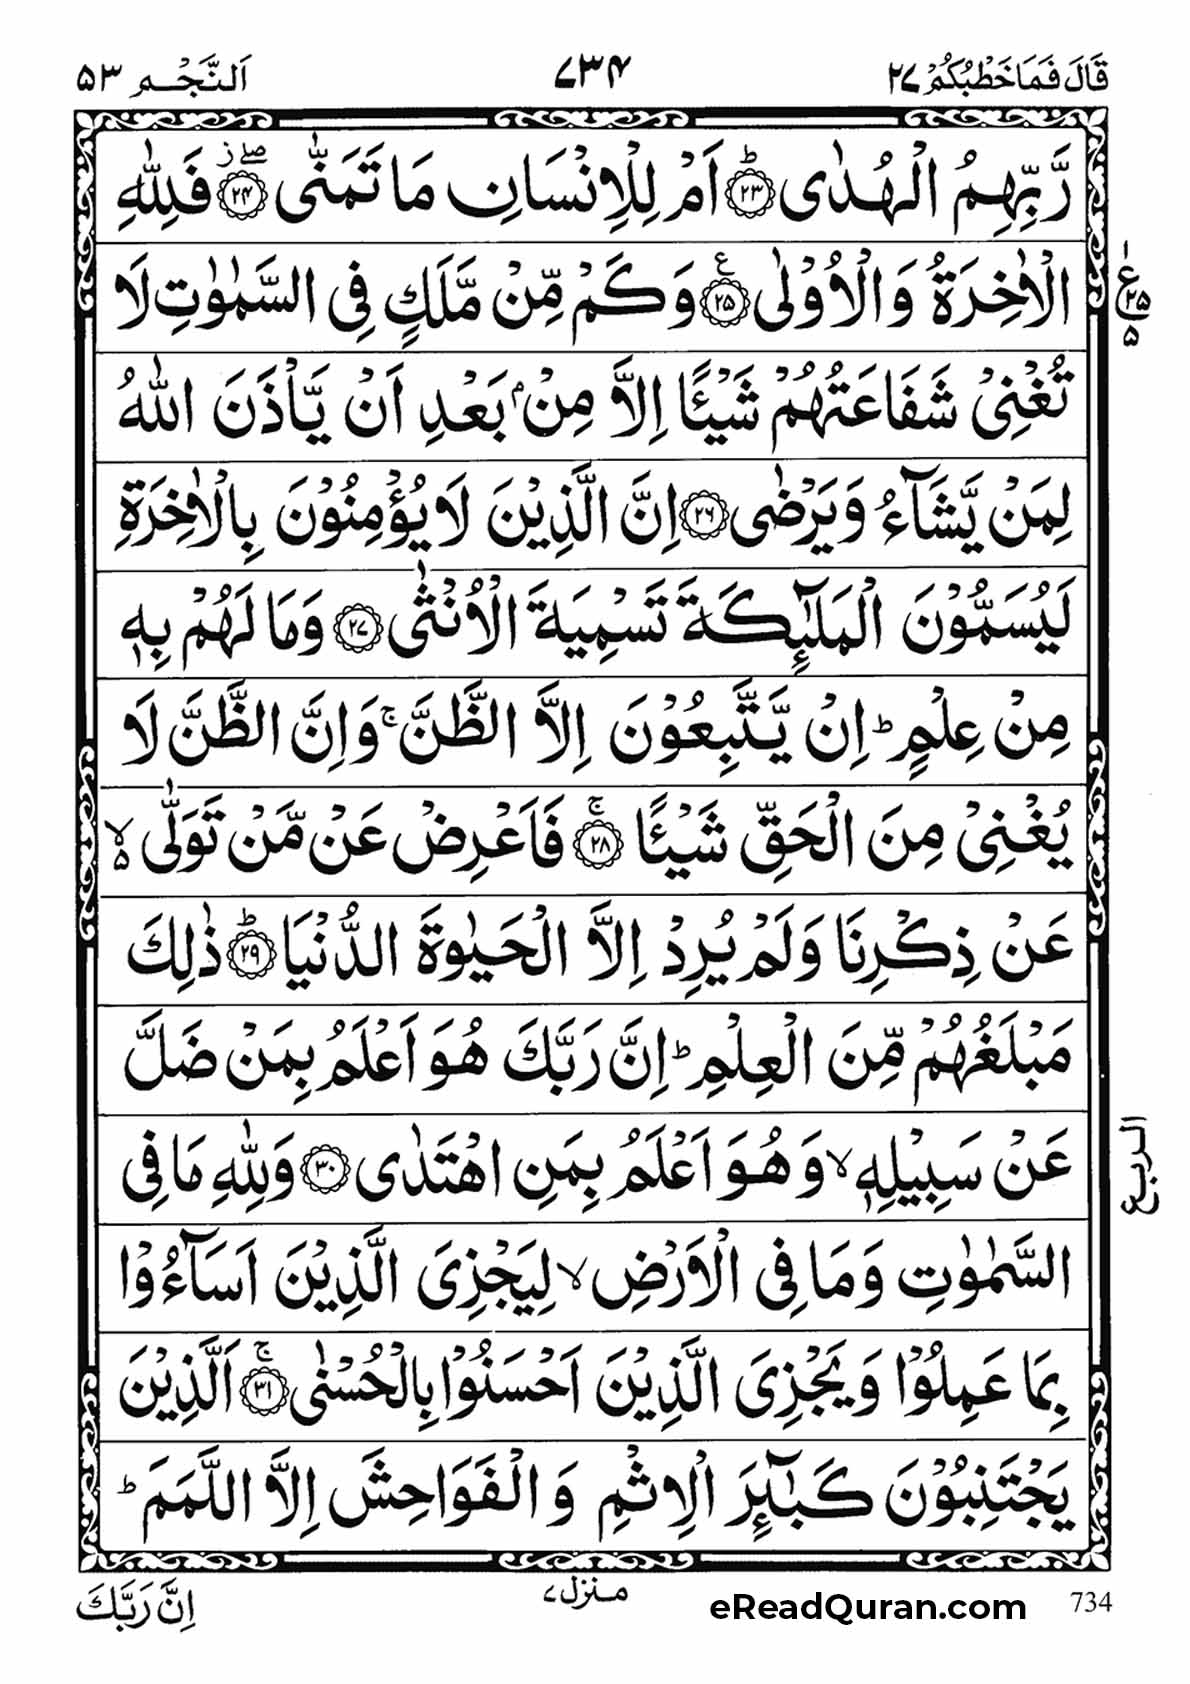 قَالَ فَمَا خَطْبُكُمْ ٢٧ ٧٣٤ اَلنَّجْم ٥٣
رَّبِّهِمُ الْهُدٰى ؕ﴿٢٣﴾ اَمْ لِلْاِنْسَانِ مَا تَمَنّٰى ۖز﴿٢٤﴾ فَلِلّٰهِ
الْاٰخِرَةُ وَالْاُوْلٰى ع﴿٢٥﴾ وَكَمْ مِّنْ مَّلَكٍ فِى السَّمٰوٰتِ لَا
ع ٢٥ ٥
تُغْنِىْ شَفَاعَتُهُمْ شَيْـًٔا اِلَّا مِنْۢ بَعْدِ اَنْ يَّاْذَنَ اللّٰهُ
لِمَنْ يَّشَآءُ وَيَرْضٰى ﴿٢٦﴾ اِنَّ الَّذِيْنَ لَا يُؤْمِنُوْنَ بِالْاٰخِرَةِ
لَيُسَمُّوْنَ الْمَلٰٓئِكَةَ تَسْمِيَةَ الْاُنْثٰى ﴿٢٧﴾ وَمَا لَهُمْ بِهٖ
مِنْ عِلْمٍ ؕ اِنْ يَّتَّبِعُوْنَ اِلَّا الظَّنَّ ۚ وَاِنَّ الظَّنَّ لَا
يُغْنِىْ مِنَ الْحَقِّ شَيْـًٔا ۚ﴿٢٨﴾ فَاَعْرِضْ عَنْ مَّنْ تَوَلّٰى ۙ۵
عَنْ ذِكْرِنَا وَلَمْ يُرِدْ اِلَّا الْحَيٰوةَ الدُّنْيَا ؕ﴿٢٩﴾ ذٰلِكَ
مَبْلَغُهُمْ مِّنَ الْعِلْمِ ؕ اِنَّ رَبَّكَ هُوَ اَعْلَمُ بِمَنْ ضَلَّ
عَنْ سَبِيْلِهٖ ۙ وَهُوَ اَعْلَمُ بِمَنِ اهْتَدٰى ﴿٣٠﴾ وَلِلّٰهِ مَا فِى
الربع
السَّمٰوٰتِ وَمَا فِى الْاَرْضِ ۙ لِيَجْزِىَ الَّذِيْنَ اَسَآءُوْا
بِمَا عَمِلُوْا وَيَجْزِىَ الَّذِيْنَ اَحْسَنُوْا بِالْحُسْنٰى ۚ﴿٣١﴾ اَلَّذِيْنَ
يَجْتَنِبُوْنَ كَبٰٓئِرَ الْاِثْمِ وَالْفَوَاحِشَ اِلَّا اللَّمَمَ ؕ
734 eReadQuran.com منزل ٧ اِنَّ رَبَّكَ